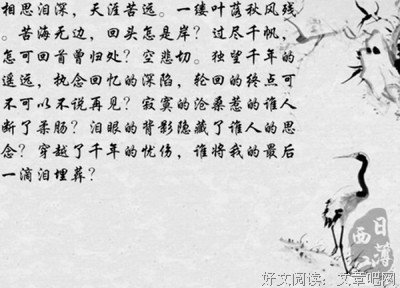 相思泪深，天涯苦远。一缕叶落秋风残
。苦海无边，回头怎是岸？过尽千帆，
怎可回首曾归处？空悲切。独望千年的
遥远，执念回忆的深陷，轮回的终点可
不可以不说再见？寂寞的沧桑惹的谁人
断了柔肠？泪眼的背影隐藏了谁人的思
念？穿越了千年的忧伤，谁将我的最后
一滴泪埋葬？
日薄
西
好文阅读：文章吧网